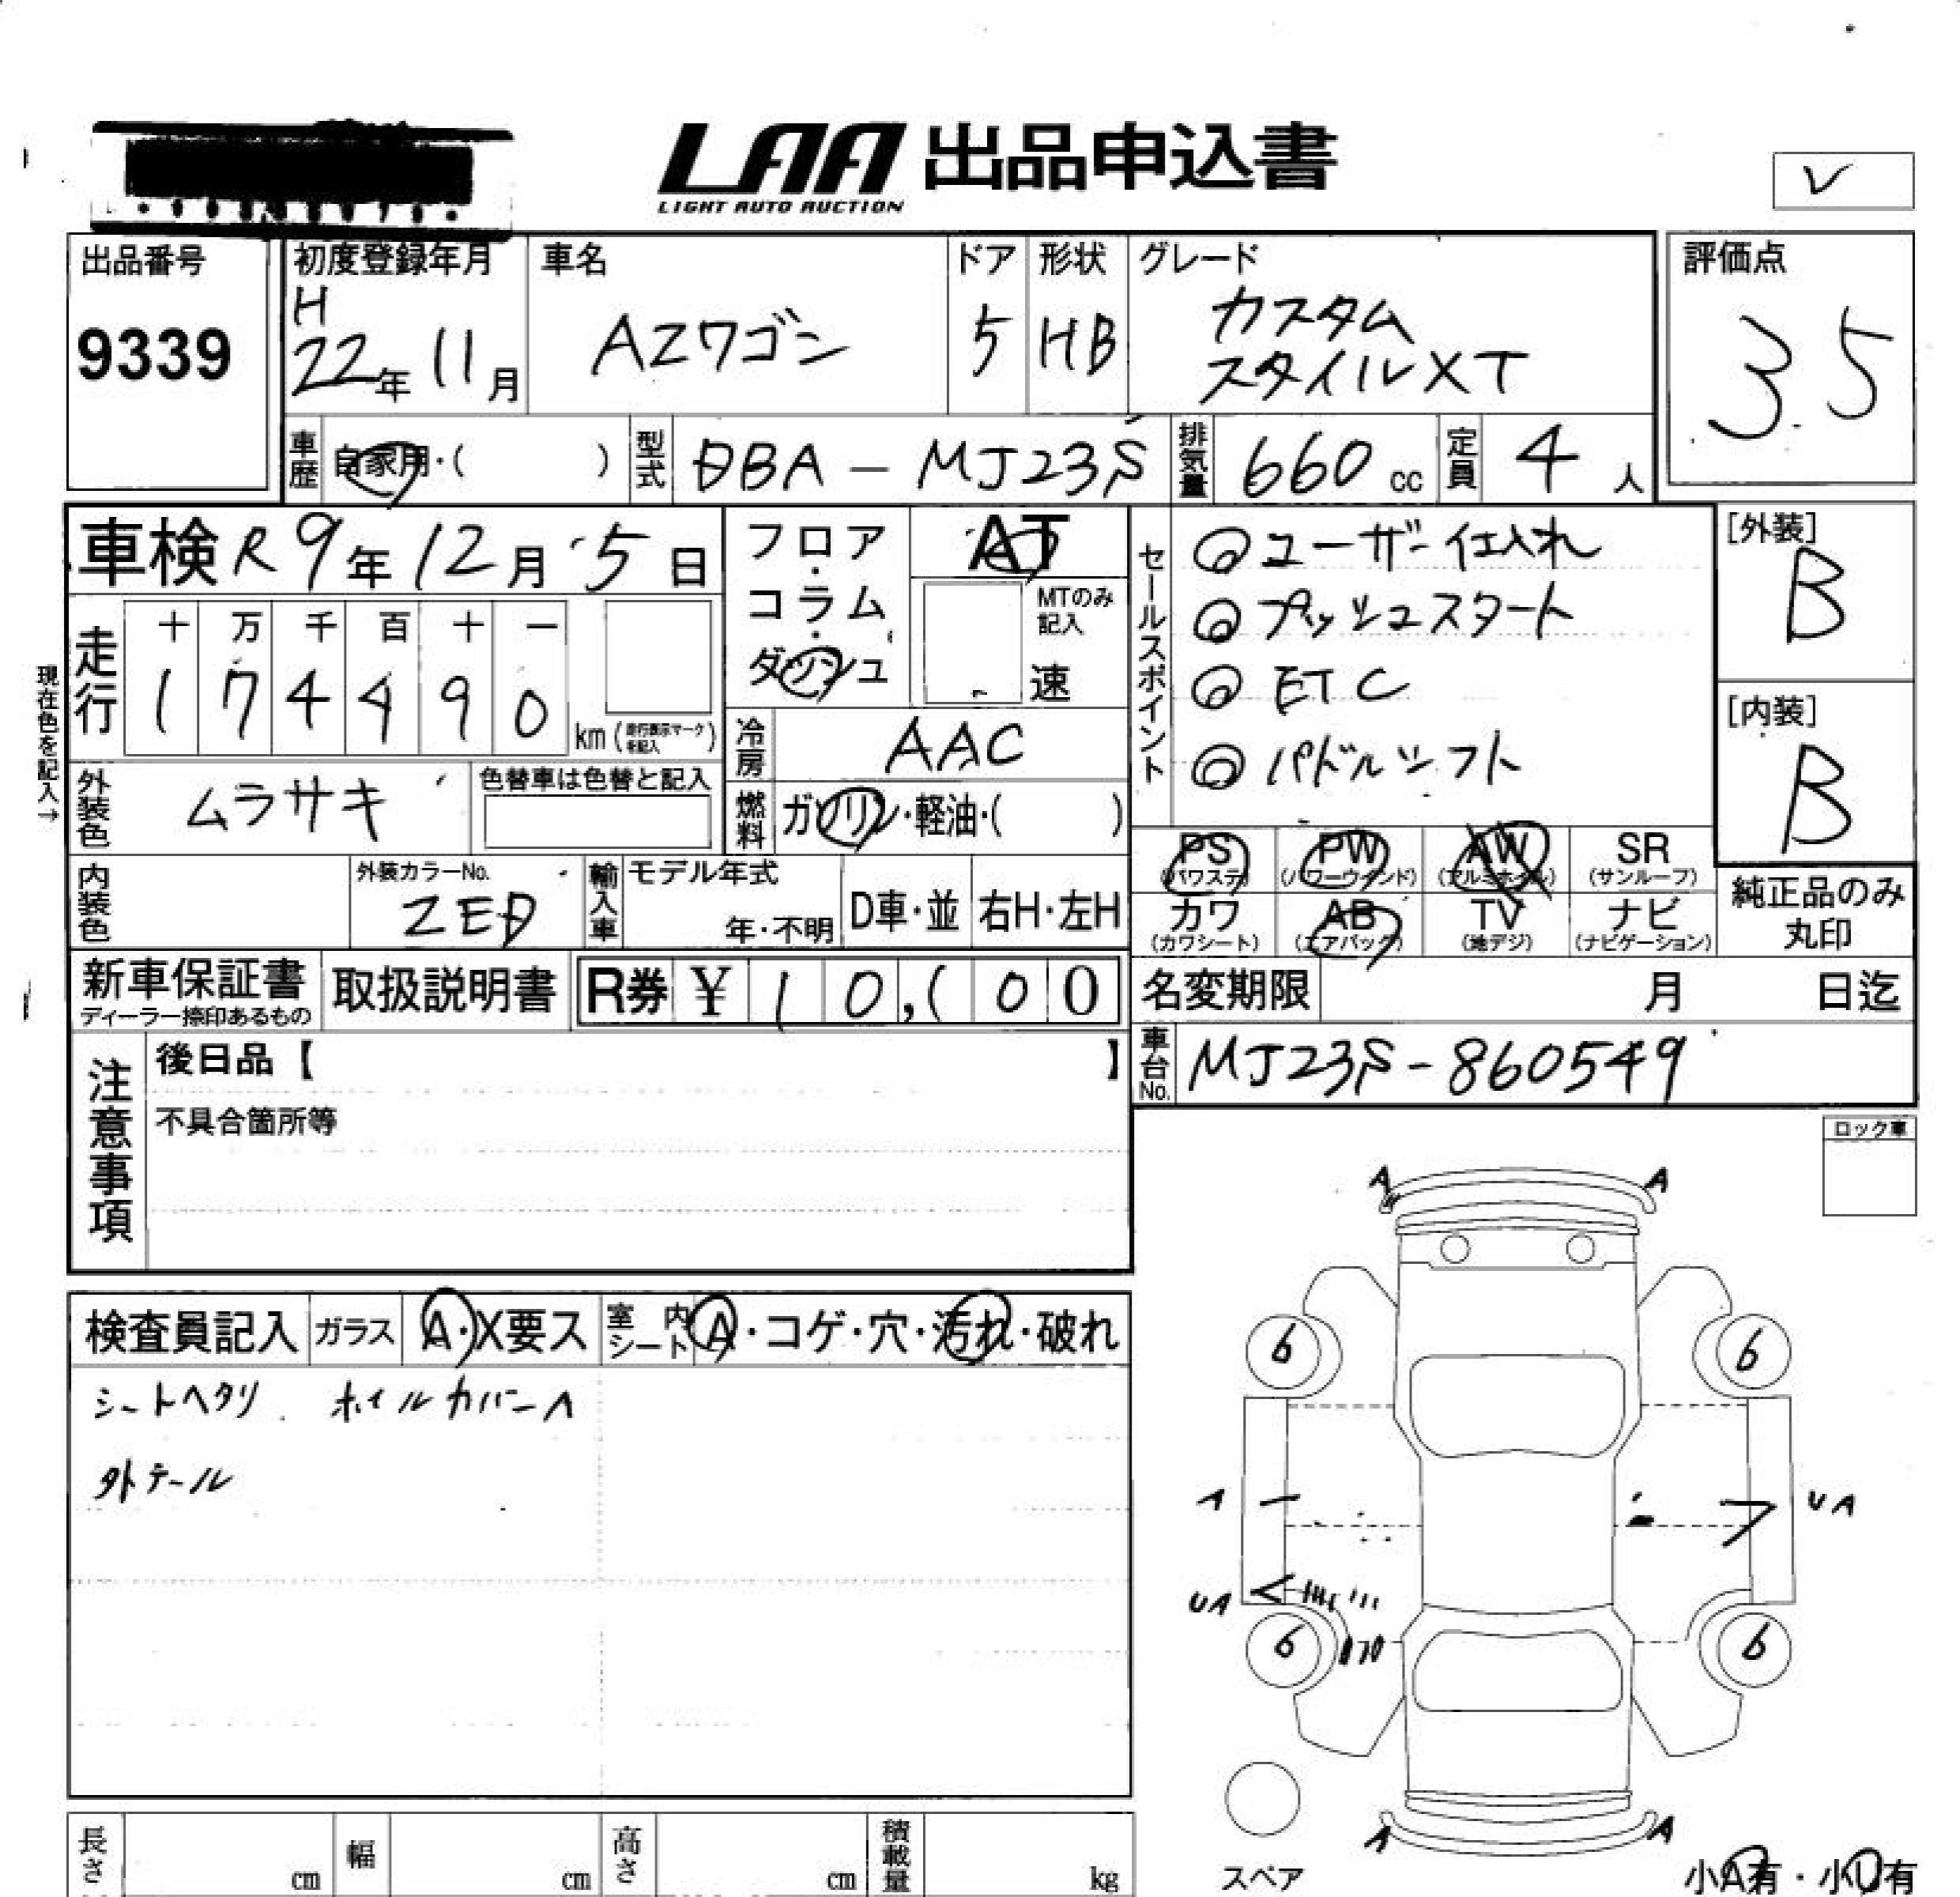 LAA 出品申込書
LIGHT AUTO AUCTION
レ
出品番号
9339
初度登録年月
H
22年 11月
車名
AZワゴン
ドア
5
形状
HB
グレード
カスタム
スタイルXT
評価点
3.5
車歴
自家用・( )
型式
DBA-MJ23S
排気量
660cc
定員
4人
車検 R9年12月5日
フロア・コラム・ダッシュ
AT
MTのみ記入
速
セールスポイント
◎ユーザー仕入れ
◎プッシュスタート
◎ETC
◎パドルシフト
[外装]
B
[内装]
B
現在色を記入→
走行
十 万 千 百 十 一
1 7 4 4 9 0
km(走行表示マークを記入)
冷房
AAC
燃料
ガソリン・軽油・( )
外装色
ムラサキ
色替車は色替と記入
内装色
外装カラーNo.
ZED
輸入車
モデル年式
年・不明
D車・並
右H・左H
PS
(パワステ)
PW
(パワーウインド)
AW
(アルミホイル)
SR
(サンルーフ)
カワ
(カワシート)
AB
(エアバック)
TV
(地デジ)
ナビ
(ナビゲーション)
純正品のみ
丸印
新車保証書
ディーラー捺印あるもの
取扱説明書
R券 ¥ 1 0,( 0 0
名変期限 月 日迄
車台No.
MJ23S-860549
注意事項
後日品【 】
不具合箇所等
ロック車
検査員記入
ガラス
A・X要ス
室内シート
A・コゲ・穴・汚れ・破れ
シートヘタリ. ホイルカバーA
外テール
A A
6 6
A UA
UA
6 6
A A
スペア
小A有・小U有
長さ cm
幅 cm
高さ cm
積載量 kg